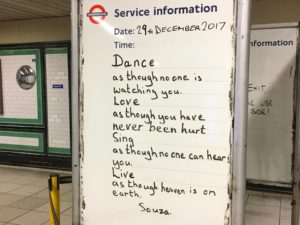 Service information
Date: 29th DECEMBER 2017
Time:
Dance
as though no one is
watching you.
Love
as though you have
never been hurt
Sing
as though no one can hear
you.
Live
as though heaven is on
earth.
Souza.
nformation
EXIT
SE USE
SIDE!